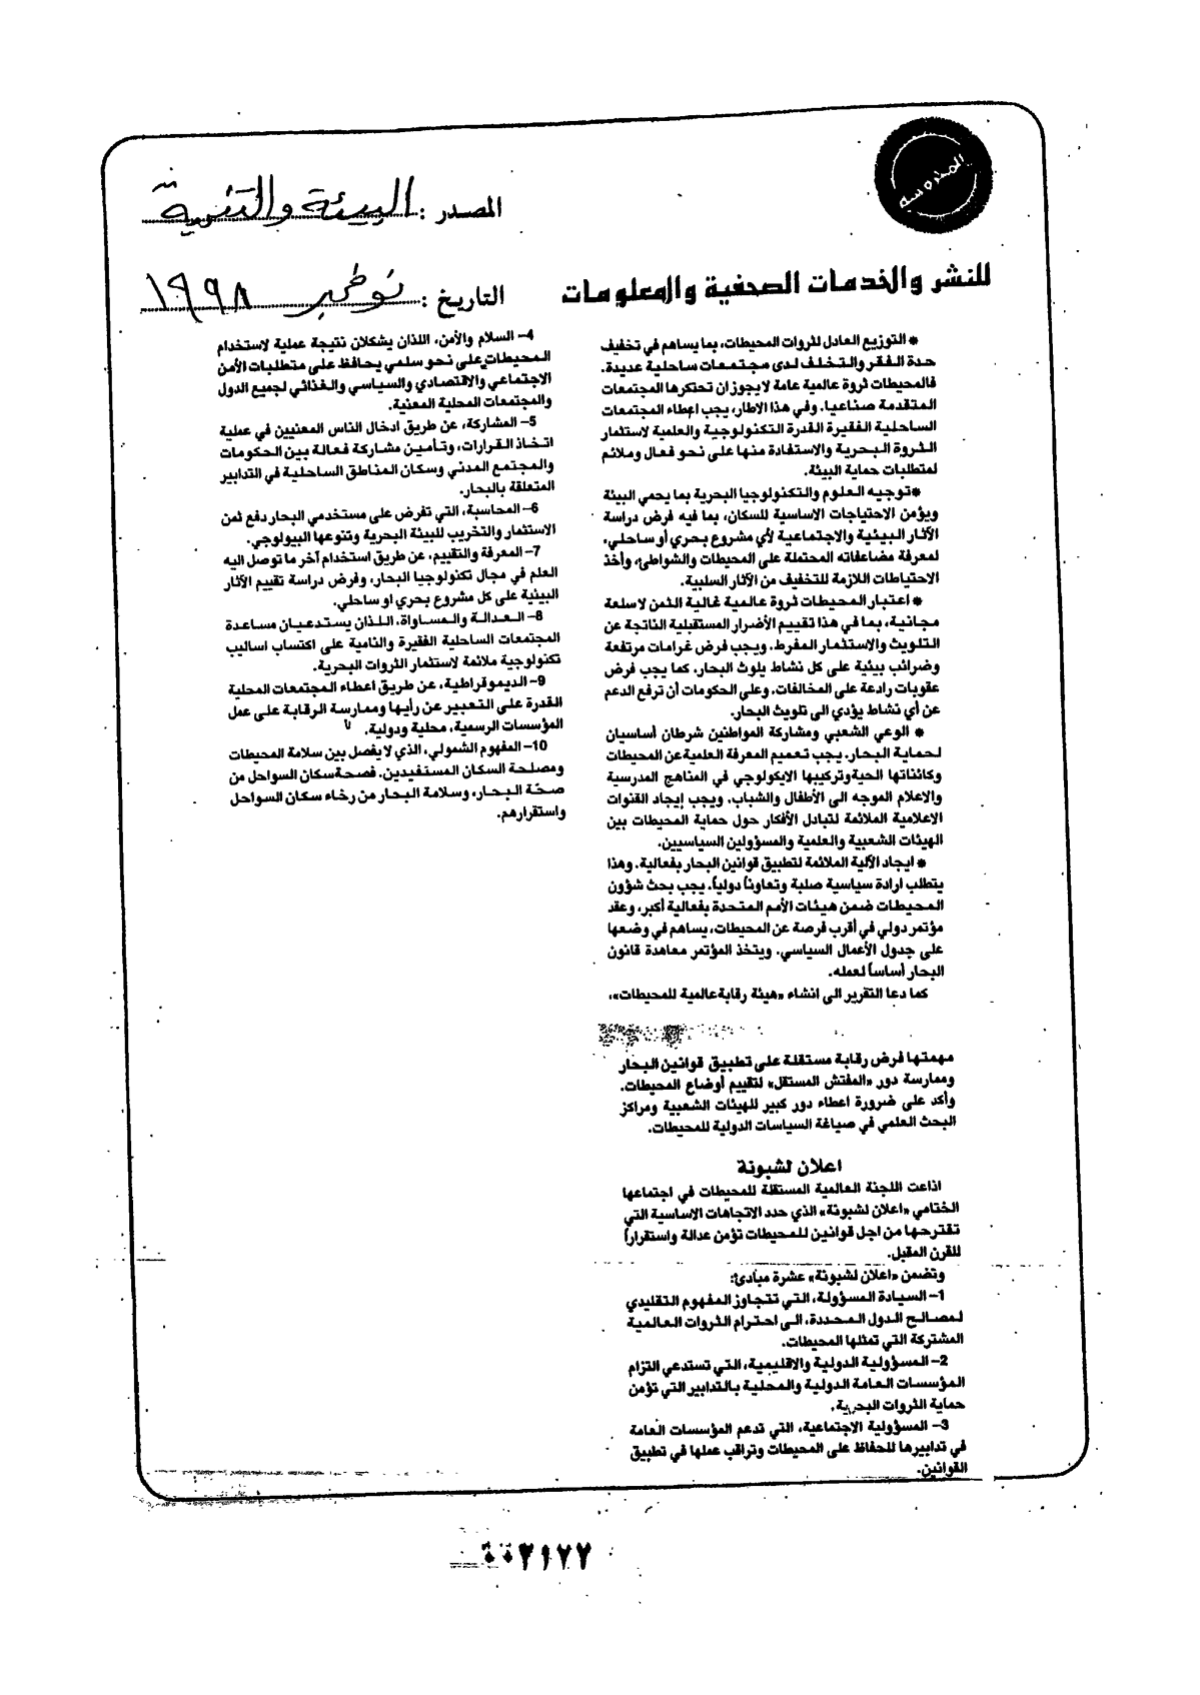 المحروسة
المصدر : البيئة والتنمية
للنشر والخدمات الصحفية والمعلومات
التاريخ : نوفمبر ١٩٩٨
* التوزيع العادل لثروات المحيطات، بما يساهم في تخفيف
حدة الفقر والتخلف لدى مجتمعات ساحلية عديدة.
فالمحيطات ثروة عالمية عامة لا يجوز ان تحتكرها المجتمعات
المتقدمة صناعيا. وفي هذا الاطار، يجب اعطاء المجتمعات
الساحلية الفقيرة القدرة التكنولوجية والعلمية لاستثمار
الثروة البحرية والاستفادة منها على نحو فعال وملائم
لمتطلبات حماية البيئة.
*توجيه العلوم والتكنولوجيا البحرية بما يحمي البيئة
ويؤمن الاحتياجات الاساسية للسكان، بما فيه فرض دراسة
الآثار البيئية والاجتماعية لأي مشروع بحري أو ساحلي،
لمعرفة مضاعفاته المحتملة على المحيطات والشواطئ، وأخذ
الاحتياطات اللازمة للتخفيف من الآثار السلبية.
* اعتبار المحيطات ثروة عالمية غالية الثمن لا سلعة
مجانية، بما في هذا تقييم الأضرار المستقبلية الناتجة عن
التلويث والاستثمار المفرط. ويجب فرض غرامات مرتفعة
وضرائب بيئية على كل نشاط يلوث البحار، كما يجب فرض
عقوبات رادعة على المخالفات. وعلى الحكومات أن ترفع الدعم
عن أي نشاط يؤدي الى تلويث البحار.
* الوعي الشعبي ومشاركة المواطنين شرطان أساسيان
لحماية البحار. يجب تعميم المعرفة العلمية عن المحيطات
وكائناتها الحية وتركيبها الايكولوجي في المناهج المدرسية
والاعلام الموجه الى الأطفال والشباب. ويجب إيجاد القنوات
الإعلامية الملائمة لتبادل الأفكار حول حماية المحيطات بين
الهيئات الشعبية والعلمية والمسؤولين السياسيين.
* ايجاد الآلية الملائمة لتطبيق قوانين البحار بفعالية. وهذا
يتطلب ارادة سياسية صلبة وتعاوناً دولياً. يجب بحث شؤون
المحيطات ضمن هيئات الأمم المتحدة بفعالية أكبر، وعقد
مؤتمر دولي في أقرب فرصة عن المحيطات، يساهم في وضعها
على جدول الأعمال السياسي. ويتخذ المؤتمر معاهدة قانون
البحار أساساً لعمله.
كما دعا التقرير الى انشاء «هيئة رقابة عالمية للمحيطات»،
مهمتها فرض رقابة مستقلة على تطبيق قوانين البحار
وممارسة دور «المفتش المستقل» لتقييم أوضاع المحيطات.
وأكد على ضرورة اعطاء دور كبير للهيئات الشعبية ومراكز
البحث العلمي في صياغة السياسات الدولية للمحيطات.
اعلان لشبونة
اذاعت اللجنة العالمية المستقلة للمحيطات في اجتماعها
الختامي «اعلان لشبونة» الذي حدد الاتجاهات الاساسية التي
تقترحها من اجل قوانين للمحيطات تؤمن عدالة واستقراراً
للقرن المقبل.
وتضمن «اعلان لشبونة» عشرة مبادئ:
1– السيادة المسؤولة، التي تتجاوز المفهوم التقليدي
لمصالح الدول المحددة، الى احترام الثروات العالمية
المشتركة التي تمثلها المحيطات.
2– المسؤولية الدولية والاقليمية، التي تستدعي التزام
المؤسسات العامة الدولية والمحلية بالتدابير التي تؤمن
حماية الثروات البحرية.
3– المسؤولية الاجتماعية، التي تدعم المؤسسات العامة
في تدابيرها للحفاظ على المحيطات وتراقب عملها في تطبيق
القوانين.
4– السلام والأمن، اللذان يشكلان نتيجة عملية لاستخدام
المحيطات على نحو سلمي يحافظ على متطلبات الأمن
الاجتماعي والاقتصادي والسياسي والغذائي لجميع الدول
والمجتمعات المحلية المعنية.
5– المشاركة، عن طريق ادخال الناس المعنيين في عملية
اتخاذ القرارات، وتأمين مشاركة فعالة بين الحكومات
والمجتمع المدني وسكان المناطق الساحلية في التدابير
المتعلقة بالبحار.
6– المحاسبة، التي تفرض على مستخدمي البحار دفع ثمن
الاستثمار والتخريب للبيئة البحرية وتنوعها البيولوجي.
7– المعرفة والتقييم، عن طريق استخدام آخر ما توصل اليه
العلم في مجال تكنولوجيا البحار، وفرض دراسة تقييم الآثار
البيئية على كل مشروع بحري او ساحلي.
8– العدالة والمساواة، اللذان يستدعيان مساعدة
المجتمعات الساحلية الفقيرة والنامية على اكتساب اساليب
تكنولوجية ملائمة لاستثمار الثروات البحرية.
9– الديموقراطية، عن طريق اعطاء المجتمعات المحلية
القدرة على التعبير عن رأيها وممارسة الرقابة على عمل
المؤسسات الرسمية، محلية ودولية.
10– المفهوم الشمولي، الذي لا يفصل بين سلامة المحيطات
ومصلحة السكان المستفيدين. فصحة سكان السواحل من
صحة البحار، وسلامة البحار من رخاء سكان السواحل
واستقرارهم.
٠٠٣١٧٧